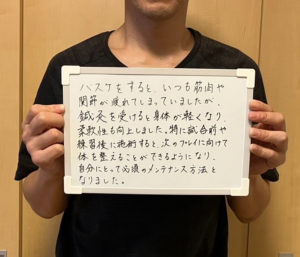 バスケをすると、いつも筋肉や
関節が疲れてしまっていましたが、
鍼灸を受けると身体が軽くなり、
柔軟性も向上しました。特に試合前や
練習後に施術すると、次のプレイに向けて
体を整えることができるようになり、
自分にとって必須のメンテナンス方法と
なりました。